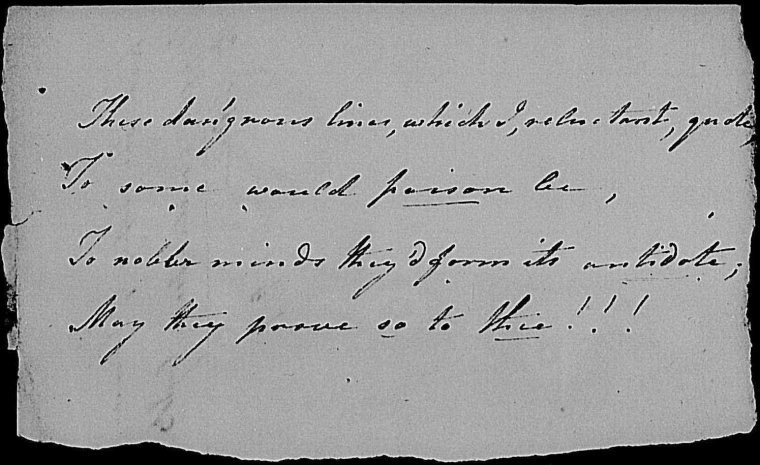 These dan'grous lines, which I, reluctant, quote,
To some would poison be,
To nobler minds they'd form its antidote;
May they prove so to thee!!!